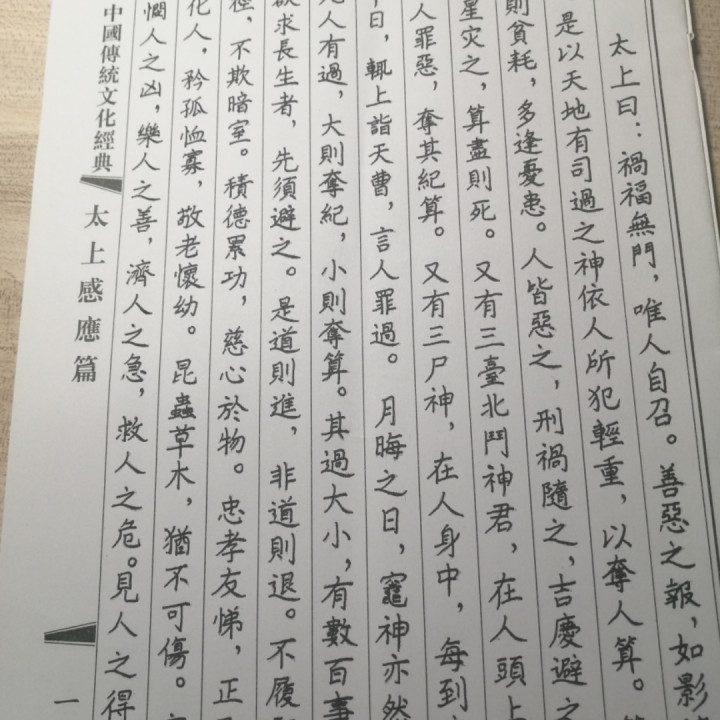 太上曰：禍福無門，唯人自召。善惡之報，如影
是以天地有司過之神依人所犯輕重，以奪人算。
則貧耗，多逢憂患。人皆惡之，刑禍隨之，吉慶避之
星灾之，算盡則死。又有三臺北鬥神君，在人頭上
人罪惡，奪其紀算。又有三尸神，在人身中，每到
日，輒上詣天曹，言人罪過。月晦之日，竈神亦然
人有過，大則奪紀，小則奪算。其過大小，有數百事
欲求長生者，先須避之。是道則進，非道則退。不履
徑，不欺暗室。積德累功，慈心於物。忠孝友悌，正
化人，矜孤恤寡，敬老懷幼。昆蟲草木，猶不可傷。
憫人之凶，樂人之善，濟人之急，救人之危。見人之得
中國傳統文化經典
太上感應篇
一